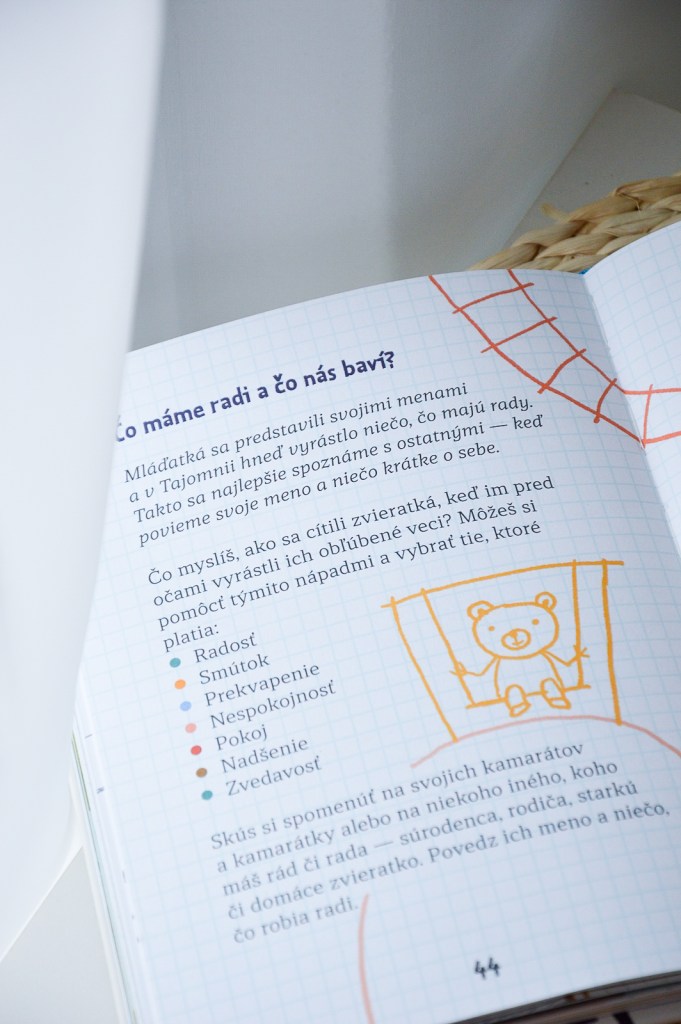 Čo máme radi a čo nás baví?
Mláďatká sa predstavili svojimi menami
a v Tajomnii hneď vyrástlo niečo, čo majú rady.
Takto sa najlepšie spoznáme s ostatnými — keď
povieme svoje meno a niečo krátke o sebe.
Čo myslíš, ako sa cítili zvieratká, keď im pred
očami vyrástli ich obľúbené veci? Môžeš si
pomôcť týmito nápadmi a vybrať tie, ktoré
platia:
Radosť
Smútok
Prekvapenie
Nespokojnosť
Pokoj
Nadšenie
Zvedavosť
Skús si spomenúť na svojich kamarátov
a kamarátky alebo na niekoho iného, koho
máš rád či rada — súrodenca, rodiča, starkú
či domáce zvieratko. Povedz ich meno a niečo,
čo robia radi.
44